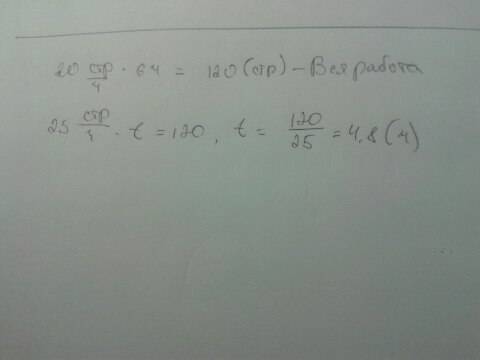 20 стр/ч · 6ч = 120 (стр) - Вся работа
25 стр/ч · t = 120, t = 120/25 = 4,8 (ч)